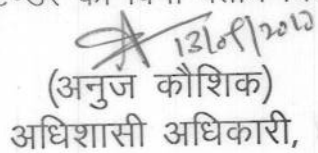 13/08/2010
(अनुज कौशिक)
अधिशासी अधिकारी,